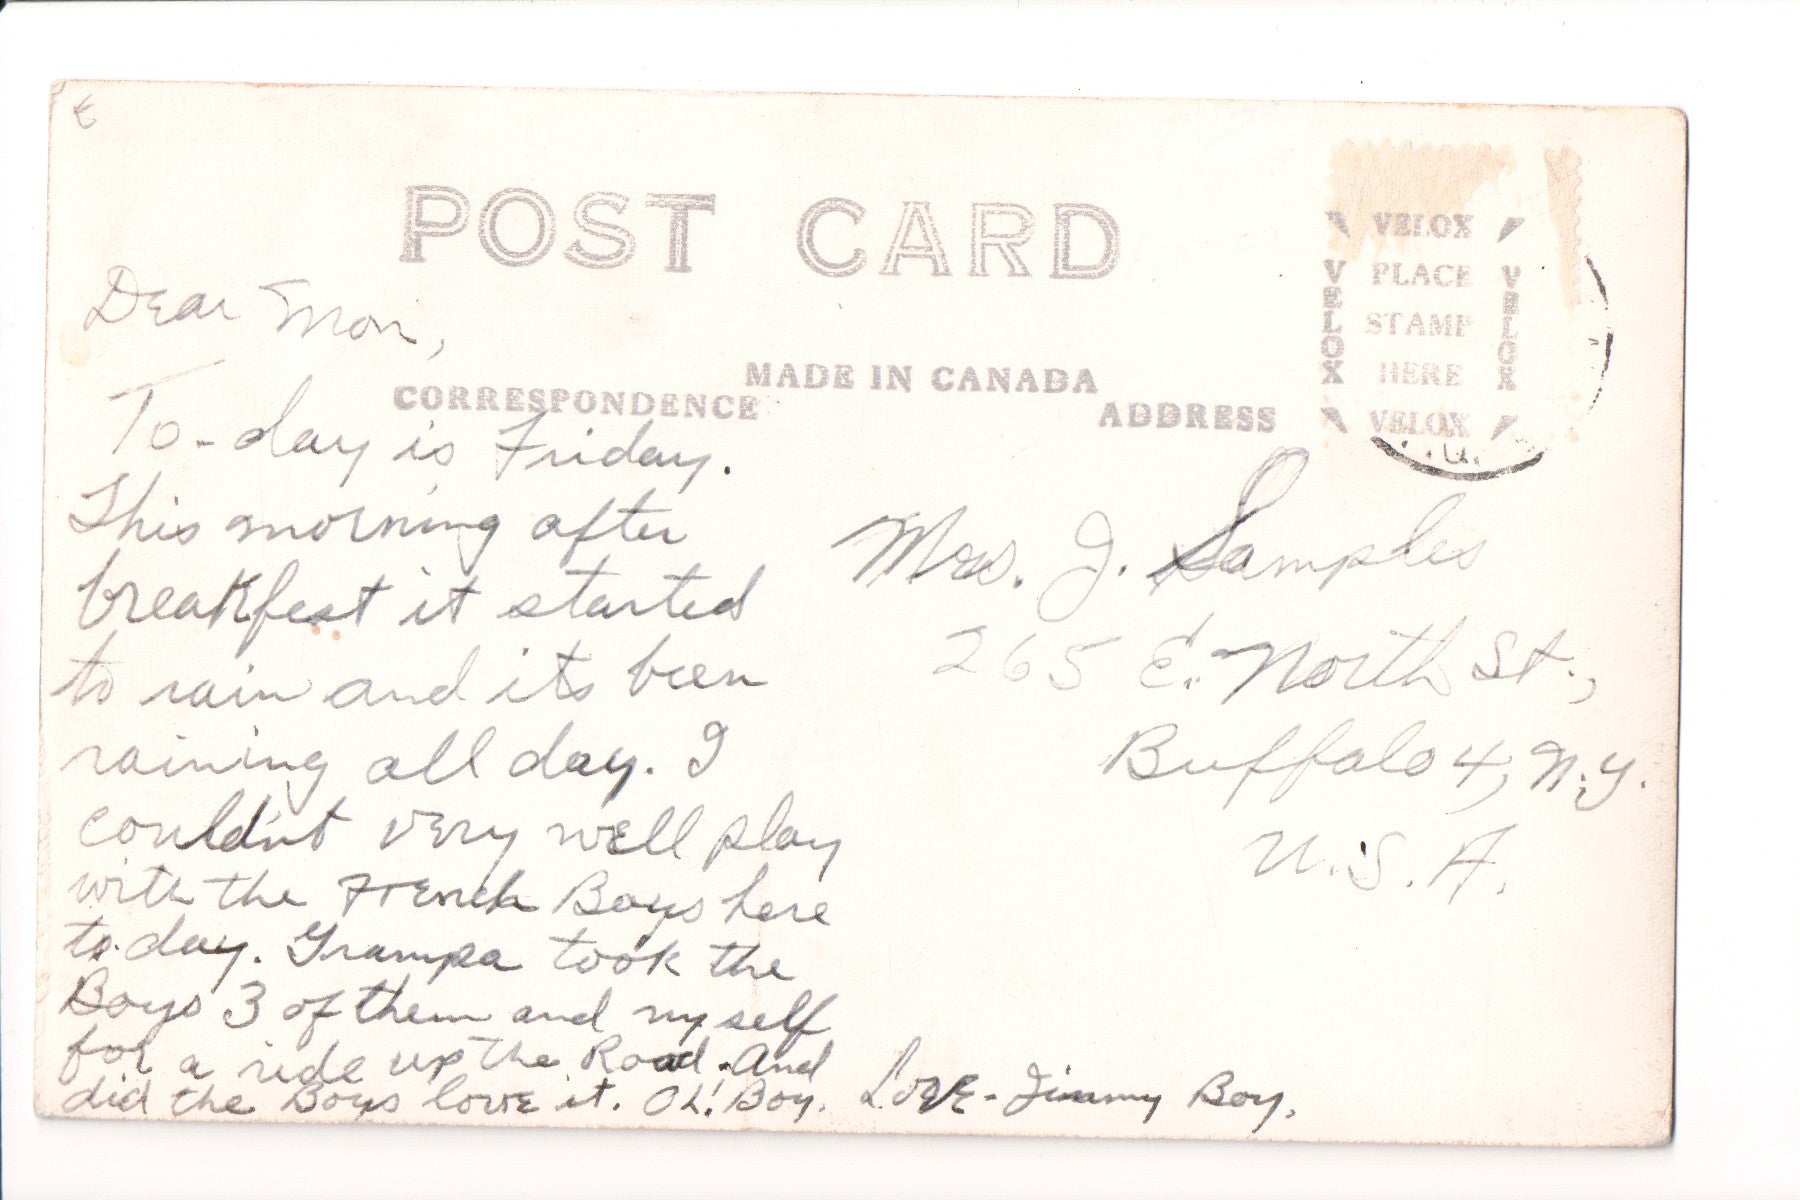 POST CARD
MADE IN CANADA
CORRESPONDENCE
ADDRESS
VELOX
PLACE
STAMP
HERE
VELOX
VELOX
VELOX
Dear Mom,
To-day is Friday.
This morning after
breakfest it started
to rain and its been
raining all day. I
couldn't very well play
with the French Boys here
to-day. Grampa took the
Boys 3 of them and my self
for a ride up the Road. And
did the Boys love it. Oh! Boy.
Love - Jimmy Boy.
Mrs. J. Samples
265 E. North St.,
Buffalo 4, N.Y.
U.S.A.